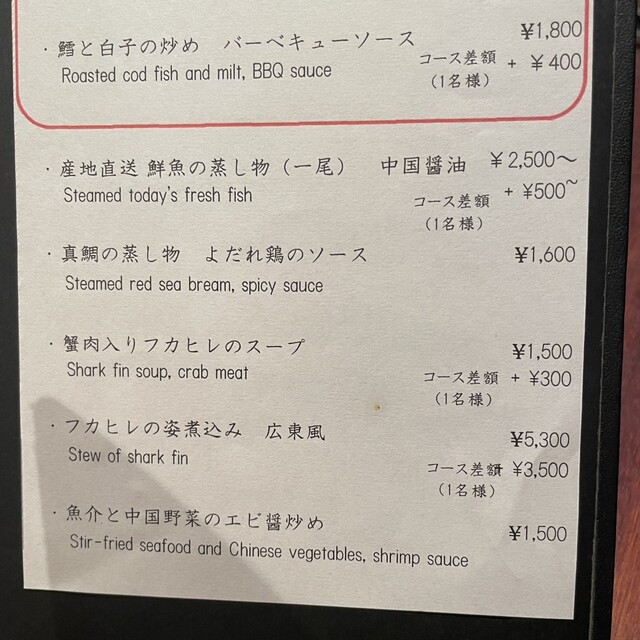 ・鱈と白子の炒め　バーベキューソース ¥1,800
Roasted cod fish and milt, BBQ sauce コース差額 + ¥400
(1名様)
・産地直送 鮮魚の蒸し物（一尾）　中国醤油 ¥2,500～
Steamed today's fresh fish コース差額 + ¥500~
(1名様)
・真鯛の蒸し物　よだれ鶏のソース ¥1,600
Steamed red sea bream, spicy sauce
・蟹肉入りフカヒレのスープ ¥1,500
Shark fin soup, crab meat コース差額 + ¥300
(1名様)
・フカヒレの姿煮込み　広東風 ¥5,300
Stew of shark fin コース差額 ¥3,500
(1名様)
・魚介と中国野菜のエビ醤炒め ¥1,500
Stir-fried seafood and Chinese vegetables, shrimp sauce